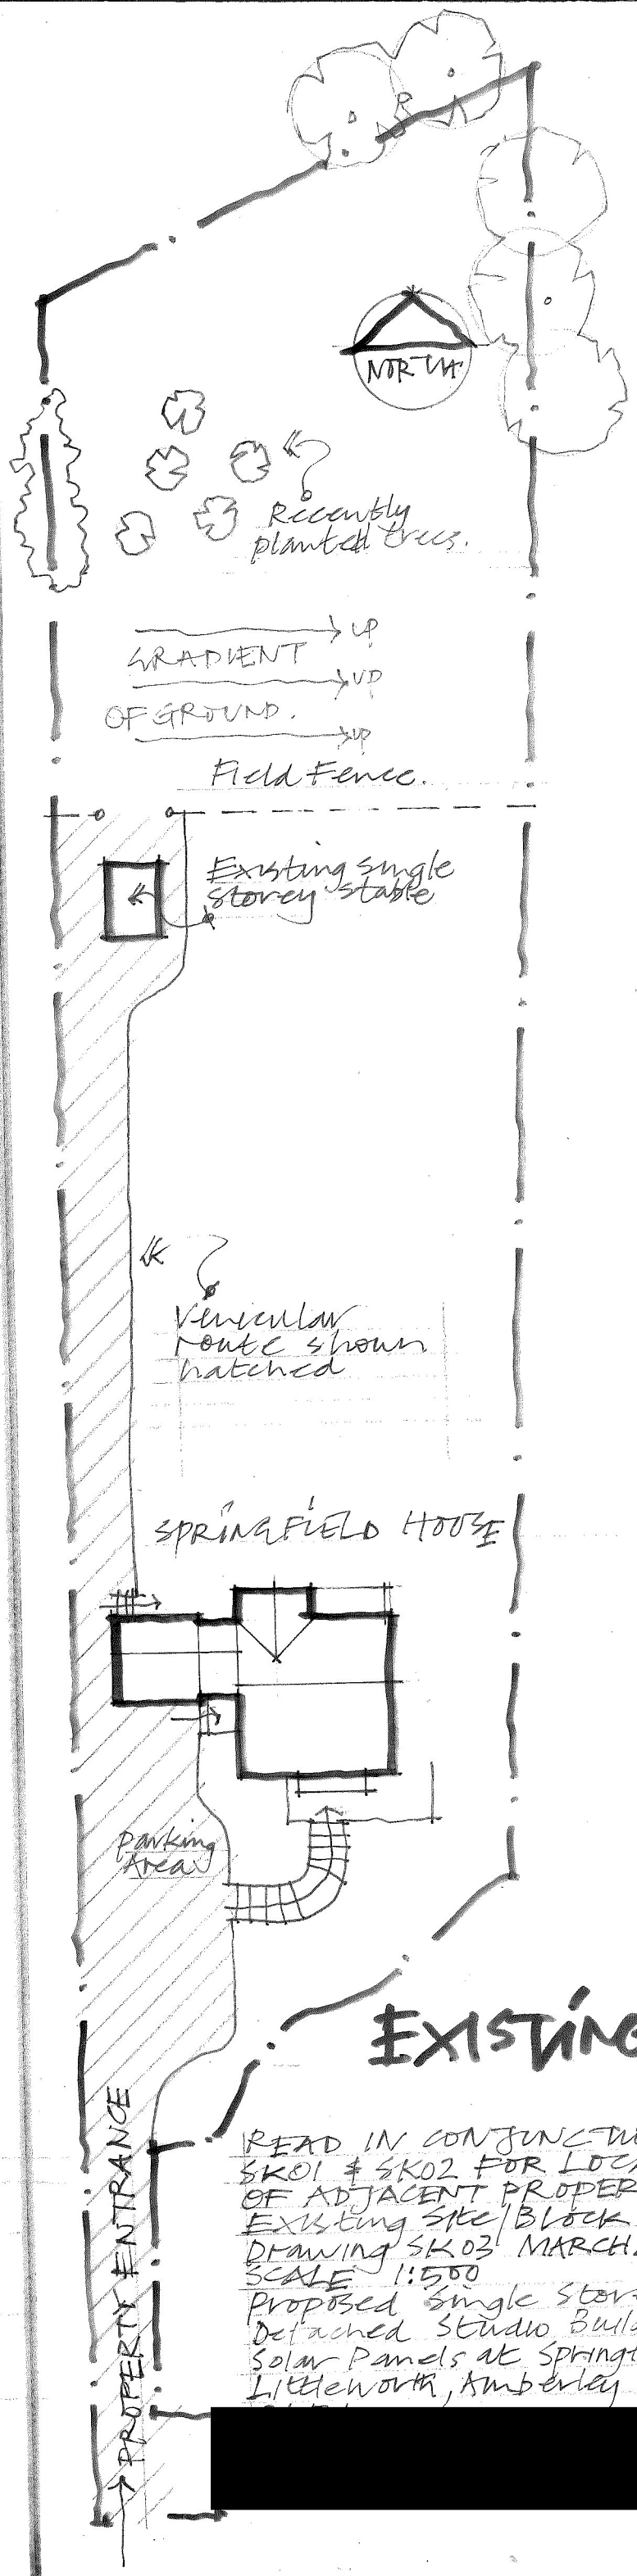 NORTH
Recently
planted trees.
UP
GRADIENT
UP
OF GROUND.
UP
Field Fence.
Existing single
storey stable
Vehicular
route shown
hatched
SPRINGFIELD HOUSE
Parking
Area
EXISTING
PROPERTY ENTRANCE
READ IN CONJUNCTI
SK01 & SK02 FOR LOCA
OF ADJACENT PROPER
Existing Site/Block
Drawing SK03 MARCH.
SCALE 1:500
Proposed Single Stor
Detached Studio Buil
Solar Panels at Spring
Littleworth, Amberley